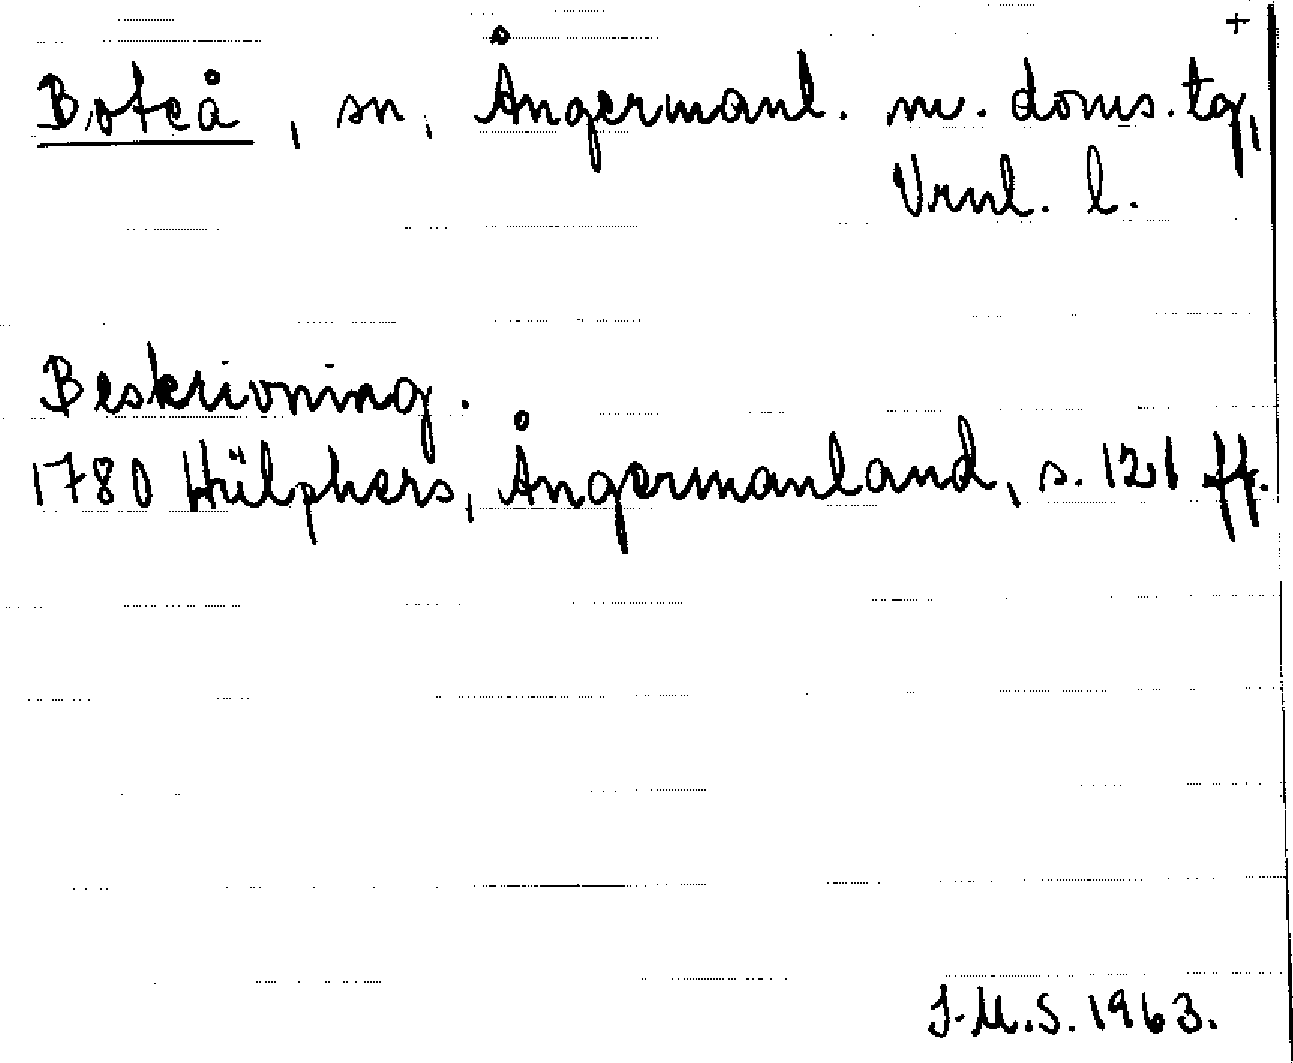 +
Boteå, sn, Ångermanl. m. doms. tg,
Vrnl. l.
Beskrivning.
1780 Hülphers, Ångermanland, s. 121 ff.
J.M.S. 1963.